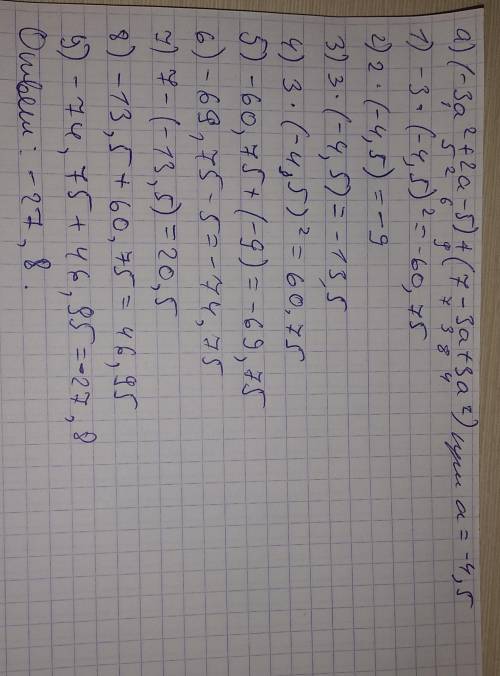 а) (-3a²+2a-5)+(7-3a+3a²) при a=-4,5
1 5 2 6 9 7 3 8 4
1) -3·(-4,5)²=-60,75
2) 2·(-4,5)=-9
3) 3·(-4,5)=-13,5
4) 3·(-4,5)²=60,75
5) -60,75+(-9)=-69,75
6) -69,75-5=-74,75
7) 7-(-13,5)=20,5
8) -13,5+60,75=46,95
9) -74,75+46,95=-27,8
Ответ: -27,8.